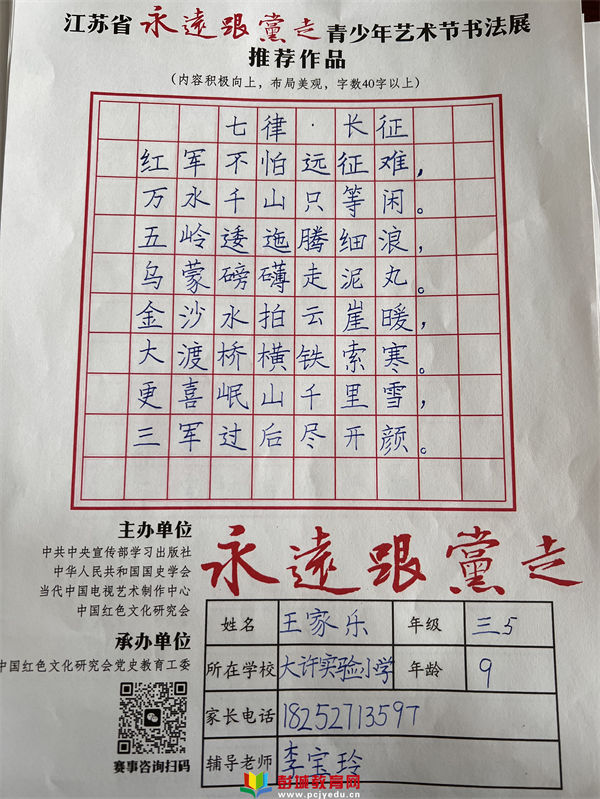 江苏省永遠跟黨走青少年艺术节书法展
推荐作品
（内容积极向上，布局美观，字数40字以上）
七律·长征
红军不怕远征难，
万水千山只等闲。
五岭逶迤腾细浪，
乌蒙磅礴走泥丸。
金沙水拍云崖暖，
大渡桥横铁索寒。
更喜岷山千里雪，
三军过后尽开颜。
主办单位
中共中央宣传部学习出版社
中华人民共和国国史学会
当代中国电视艺术制作中心
中国红色文化研究会
承办单位
中国红色文化研究会党史教育工委
赛事咨询扫码
永遠跟黨走
姓名 王家乐 年级 三5
所在学校 大许实验小学 年龄 9
家长电话 18252713597
辅导老师 李宝玲
彭城教育网
www.pcjyedu.cn